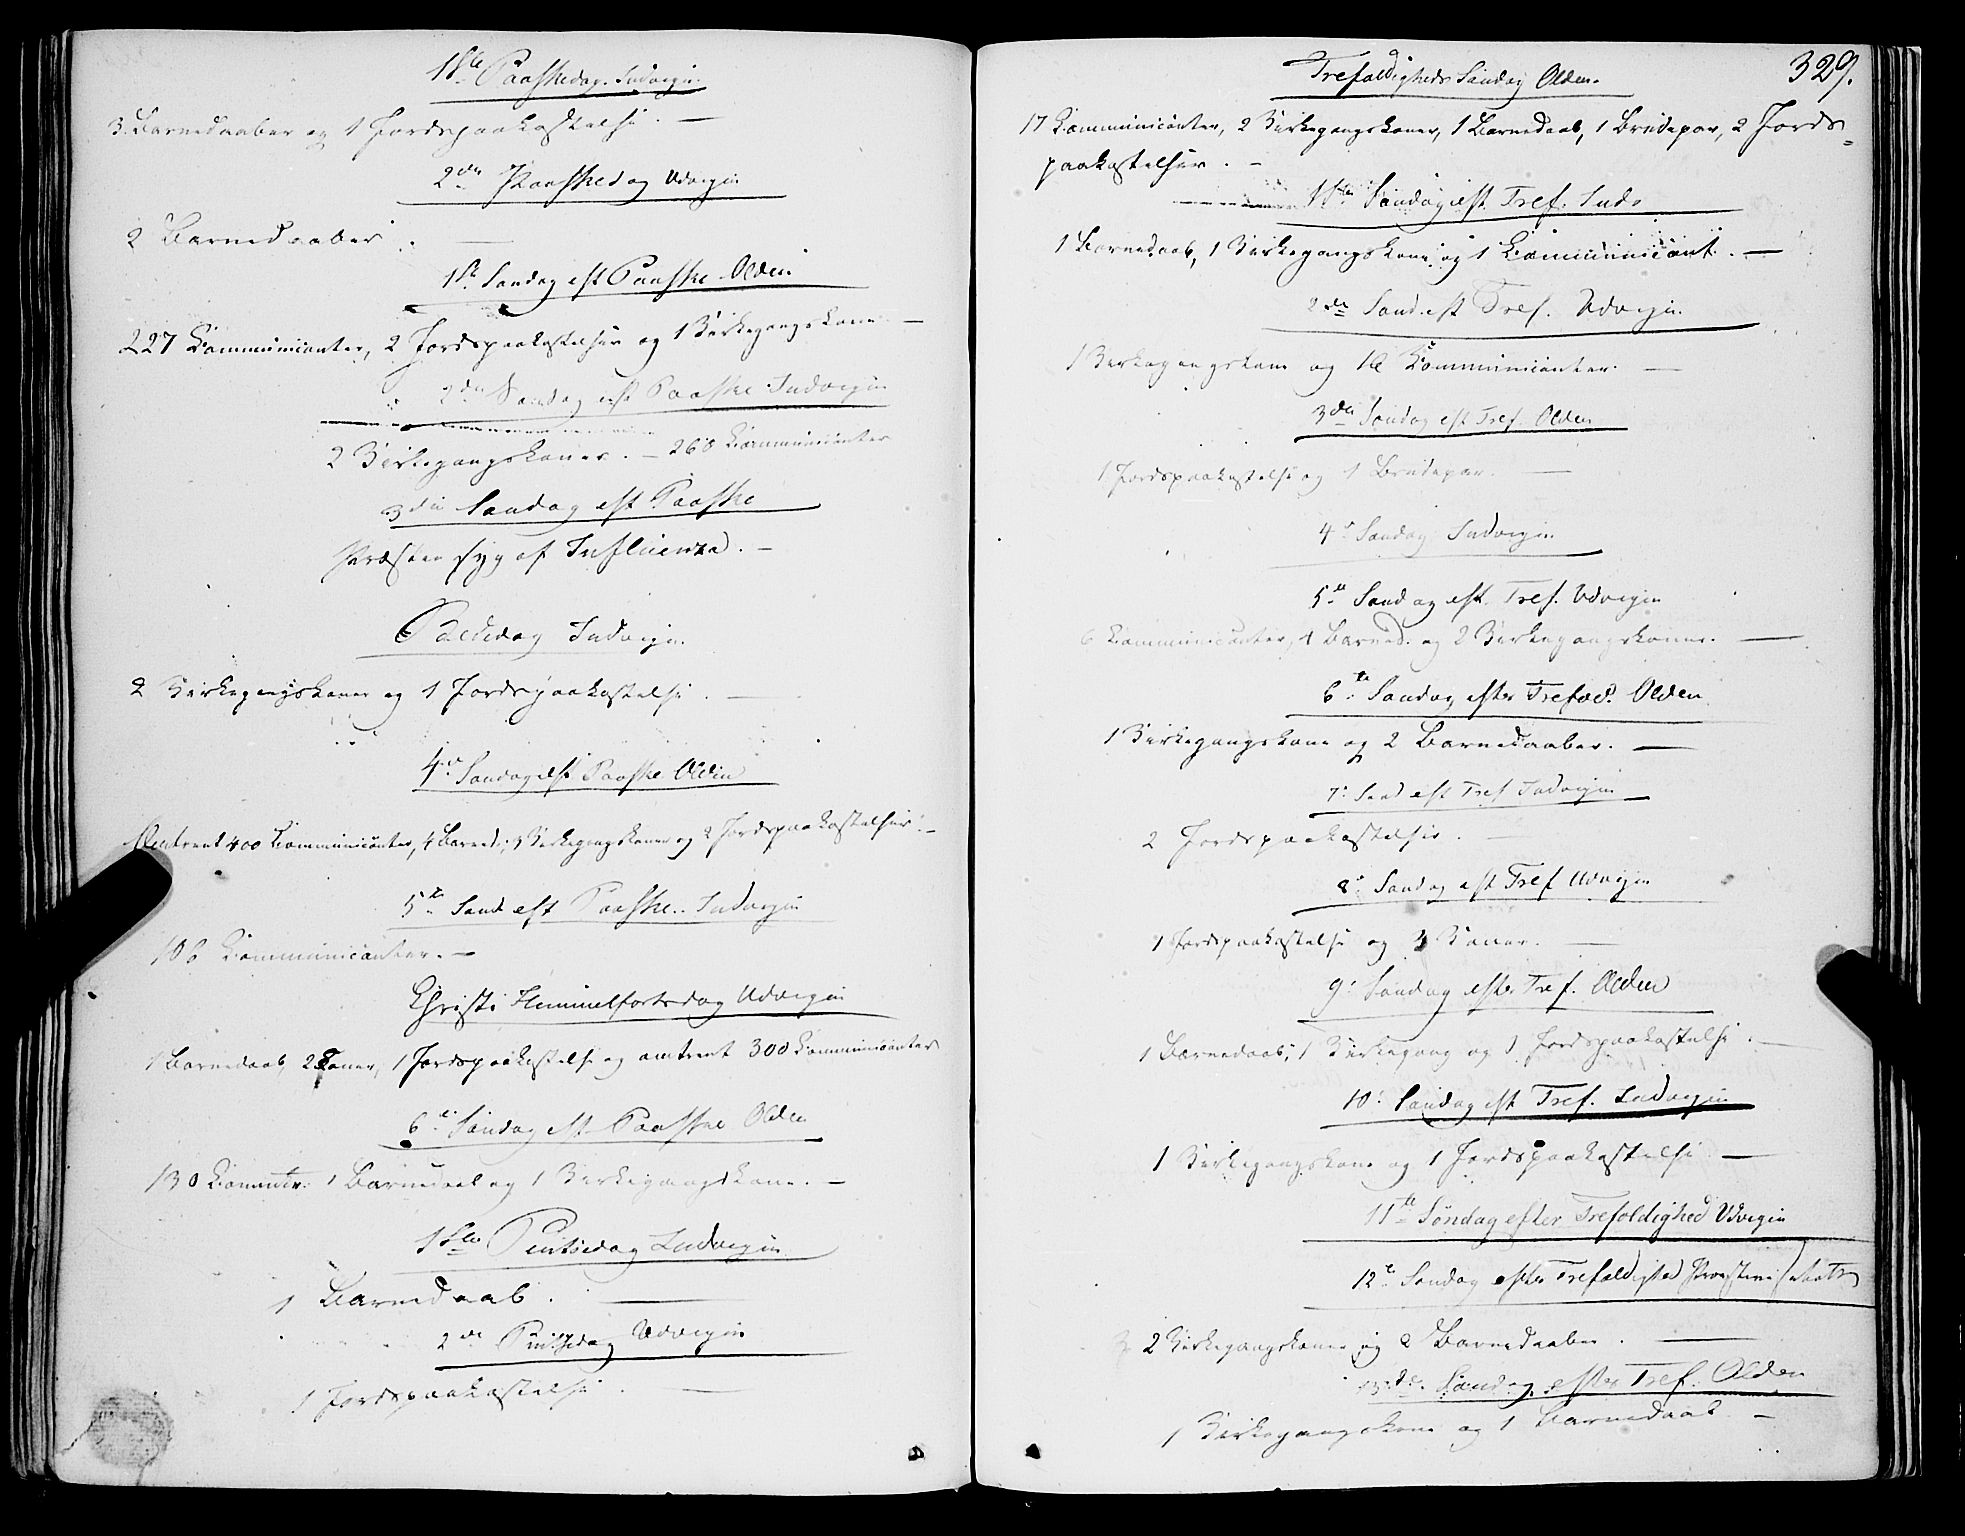 1ste Paaskedag. Indvigen.
3 Barnedaaber og 1 Jordspaakastelse. —
2den Paaskedag Udvigen
2 Barnedaaber. —
1ste Søndag eft Paaske Olden
227 Communicanter, 2 Jordspaakastelser og 1 Kirkegangskone. —
2den Søndag eft Paaske Indvigen
2 Kirkegangskoner. — 260 Communicanter
3die Søndag eft Paaske
Præsten syg af Influenza. —
Bededag Indvigen.
2 Kirkegangskoner og 1 Jordspaakastelse. —
4de Søndag eft Paaske Olden
Omtrent 400 Communicanter, 4 Barned., 3 Kirkegangskoner og 2 Jordspaakastelser. —
5te Sønd eft Paaske. Indvigen
106 Communicanter. —
Christi Himmelfartsdag Udvigen
1 Barnedaab, 2 Koner, 1 Jordspaakastelse og omtrent 300 Communicanter
6te Søndag eft Paaske Olden
130 Commtr. 1 Barnedaab og 1 Kirkegangskone. —
1ste Pintsedag Indvigen
1 Barnedaab. —
2den Pintsedag Udvigen
1 Jordspaakastelse. —
329.
Trefoldigheds Søndag Olden.
17 Communicanter, 2 Kirkegangskoner, 1 Barnedaab, 1 Brudepar, 2 Jords-
paakastelser. —
1ste Søndag eft. Tref. Indv
1 Barnedaab, 1 Kirkegangskone og 1 Communicant. —
2den Sønd. eft Tref. Udvigen.
1 Kirkegangskone og Communicanter. —
3die Søndag eft Tref. Olden
1 Jordspaakastelse og 1 Brudepar. —
4de Søndag Indvigen
5te Søndag eft. Tref. Udvigen
6 Communicanter, 4 Barned. og 2 Kirkegangskoner. —
6te Søndag efter Trefold. Olden
1 Kirkegangskone og 2 Barnedaaber. —
7. Sønd eft Tref Indvigen
2 Jordspaakastelser. —
8. Søndag eft Tref Udvigen
1 Jordspaakastelse og 3 Koner. —
9. Søndag efter Tref. Olden
1 Barnedaab, 1 Kirkegang og 1 Jordspaakastelse. —
10. Søndag eft Tref. Indvigen
1 Kirkegangskone og 1 Jordspaakastelse —
11te Søndag efter Trefoldighed Udvigen
12te Søndag efter Trefoldighed
2 Kirkegangskoner og 2 Barnedaaber. —
13de Søndag efter Tref. Olden
1 Kirkegangskone og 1 Barnedaab —